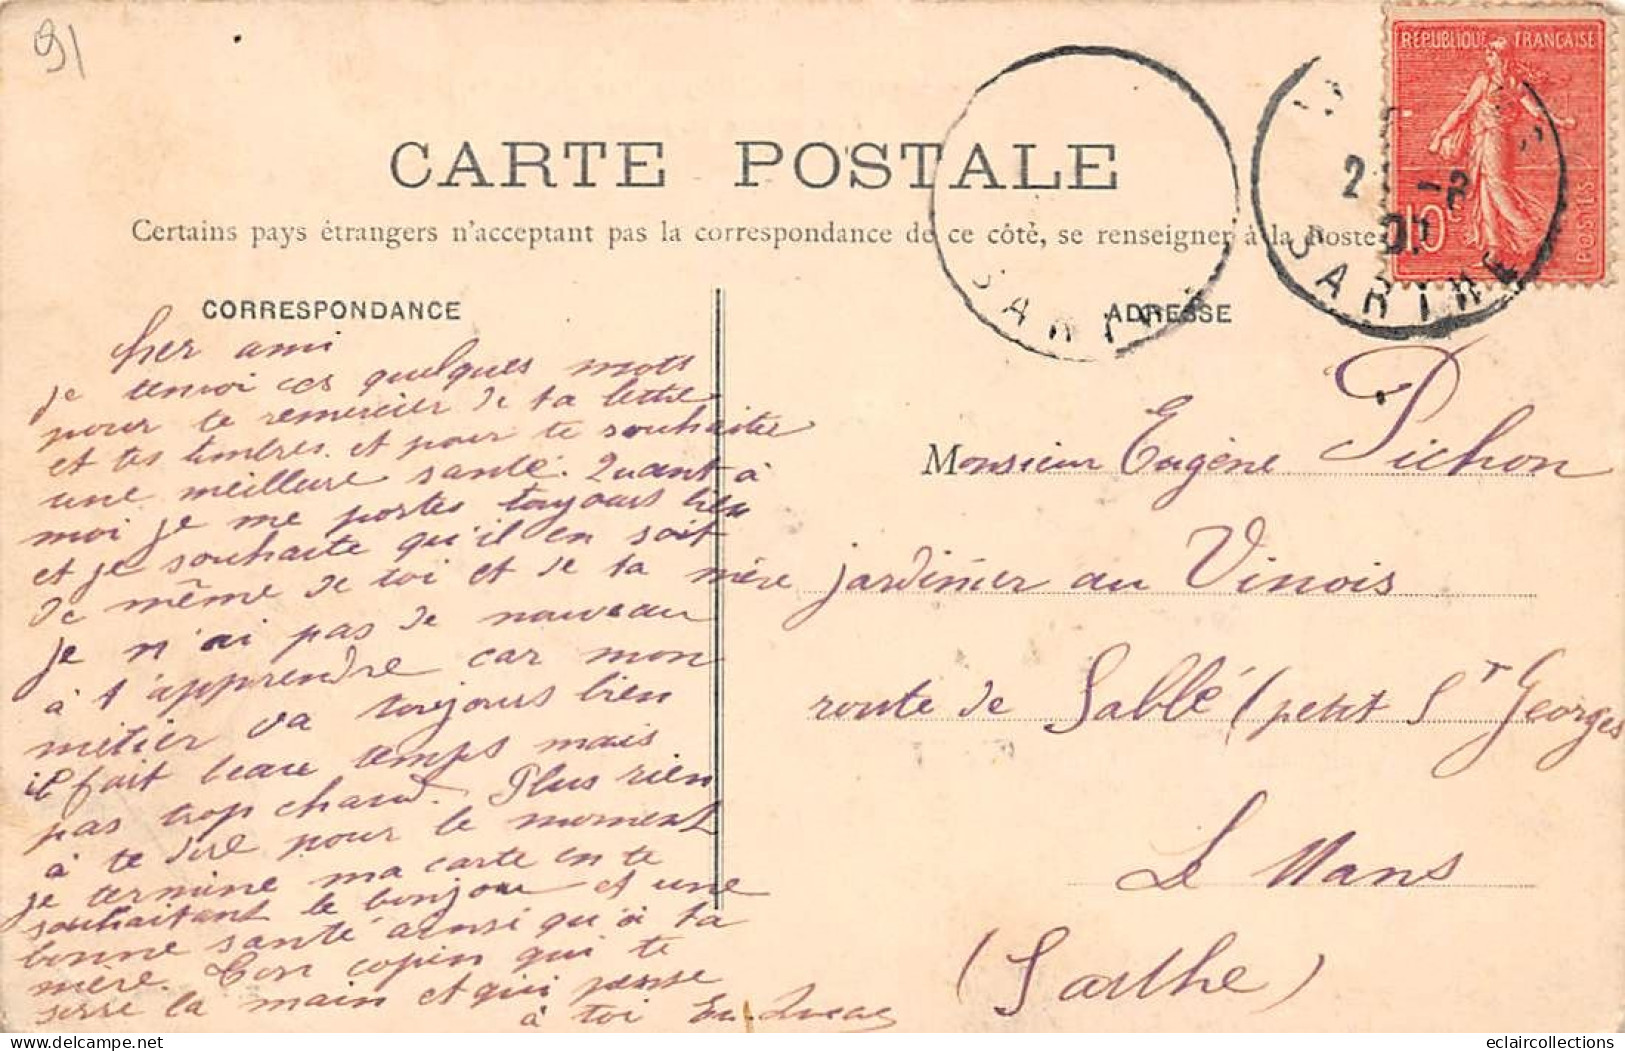 91
CARTE POSTALE
Certains pays étrangers n'acceptent pas la correspondance de ce côté, se renseigner à la Poste
REPUBLIQUE FRANÇAISE
10c
POSTES
SARTHE
SARTHE
CORRESPONDANCE
cher ami
je tenvoi ces quelques mots
pour te remercier de ta lettre
et tes timbres. et pour te souhaiter
une meilleure santé. Quant à
moi je me portes toujours bien
et je souhaite qu'il en soit
de même de toi et de ta mère
je n'ai pas de nouveau
à t'apprendre car mon
métier va toujours bien
il fait beau temps mais
pas trop chaud. Plus rien
à te dire pour le moment
je termine ma carte en te
souhaitant le bonjour et une
bonne santé ainsi qu'à ta
mère. Ton copin qui te
serre la main et qui pense
à toi Eu. Lucas
ADRESSE
Monsieur Eugène Pichon
jardinier au Vinois
route de Sablé (petit St Georges
Le Mans
(Sarthe)
eclaircollections